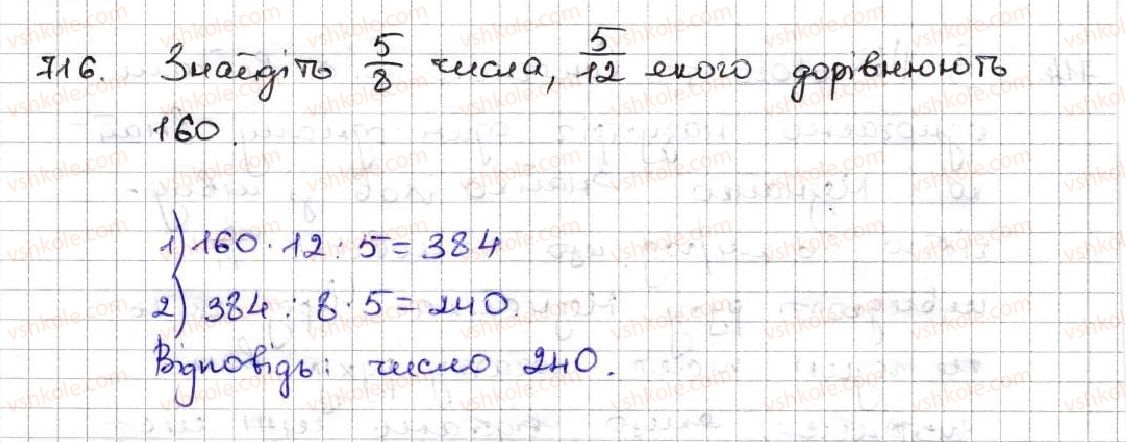 716. Знайдіть 5/8 числа, 5/12 якого дорівнюють
160.
1) 160 · 12 : 5 = 384
2) 384 : 8 · 5 = 240.
Відповідь: число 240.